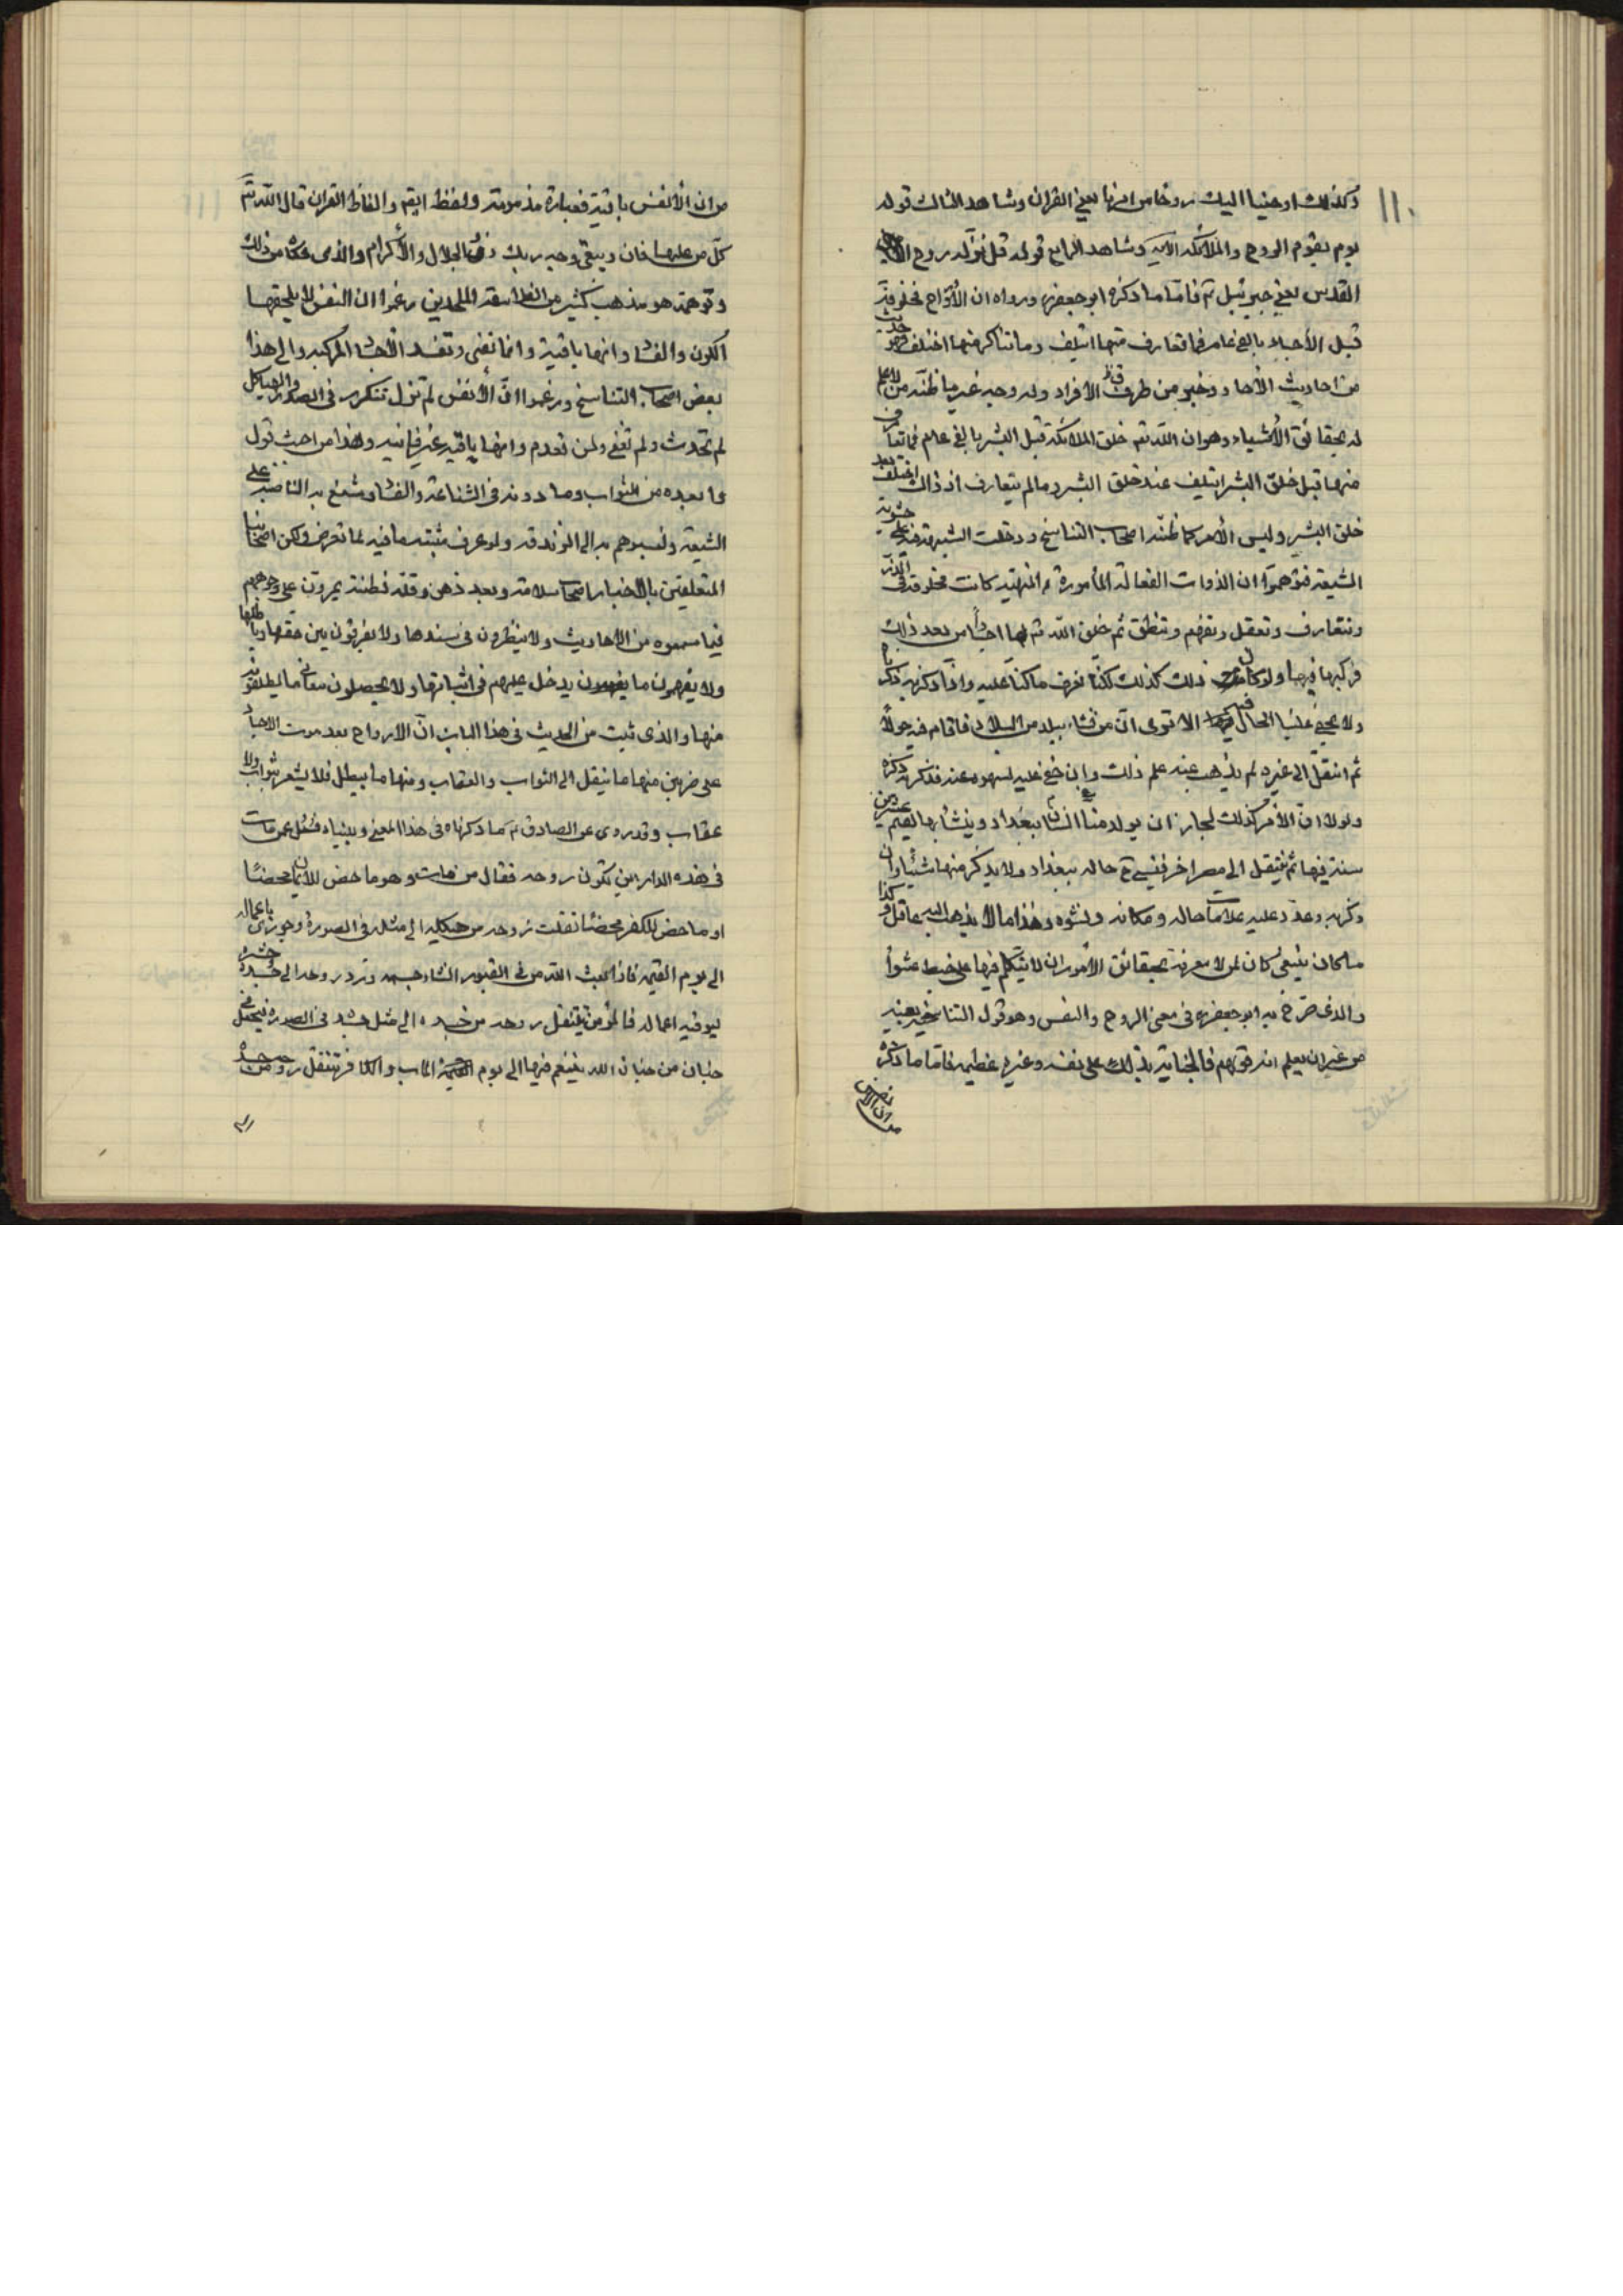 ١١٠
وكذلك اوحينا اليك روحا من امرنا يعني القران وشاهد الثالث قوله
يوم يقوم الروح والملائكة الآية وشاهد الرابع قوله قل نزله روح
القدس يعني جبرئيل ع فاما ما ذكره ابو جعفر ره ورواه ان الأرواح مخلوقة
قبل الأجساد بالفي عام فما تعارف منها ائتلف وما تناكر منها اختلف فهو حديث
من احاديث الأحاد وخبر من طرق الافراد وله وجه غير ما ظنه من لا علم
له بحقائق الأشياء وهو ان الله تعم خلق الملائكة قبل البشر بالفي عام فما تعارف
منها قبل خلق البشر ائتلف عند خلق البشر وما لم يتعارف اذ ذاك اختلف بعد
خلق البشر وليس الأمر كما ظنه اصحاب التناسخ ودخلت الشبهة فيه على حشوية
الشيعة فتوهموا ان الذوات الفعالة المأمورة و المنهية كانت مخلوقة في الذر
وتتعارف وتعقل وتفهم وتنطق ثم خلق الله ثم لها اجسادا من بعد ذلك
فركبها فيها ولو كان ذلك كذلك لكنا نعرف ما كنا عليه واذا ذكرنا به ذكرناه
ولا يخفى علينا الحال فيه الا ترى ان من نشاء ببلد من البلاد فاقام فيه حولا
ثم انتقل الى غيره لم يذهب عنه علم ذلك وإن خفي عليه لسهوه عنه فتذكر به ذكره
ولولا ان الأمر كذلك لجاز ان يولد منا انسان ببغداد وينشأ بها ويقيم عشرين
سنة فيها ثم ينتقل الى مصر اخر فينسى حاله ببغداد ولا يذكر منها شيئا وان
ذكر به وعدد عليه علامات حاله ومكانه ونشوه وهذا ما لا يذهب اليه عاقل وكذا
ما كان ينبغي كان لمن لا معرفة بحقائق الأمور ان لا يتكلم فيها على خبط عشوا
والذي صرح به ابو جعفر ره في معنى الروح والنفس وهو قول التناسخية بعينه
من غير ان يعلم انه قولهم فالجناية بذلك على نفسه وغيره عظيمة فاما ما ذكره
من ان الأنفس
من ان الأنفس باقية فعبارة مذمومة ولفظ ايضم والفاظ القران قال الله تعم
كل من عليها فان ويبقى وجه ربك ذو الجلال والأكرام والذي حكاه من ذلك
وتوهمه هو مذهب كثير من الفلاسفة الملحدين زعموا ان النفس لا يلحقها
الكون والفساد وانها باقية وانما تفنى وتفسد الأجساد المركبة والى هذا
بعض اصحاب التناسخ وزعموا ان الأنفس لم تزل تتكرر في الصور والهياكل
لم تحدث ولم تفنى ولن تعدم وانها باقية غير فانية وهذا من اخبث قول
وابعده من الثواب وما دونه في الشناعة والفساد شنع به الناصبة على
الشيعة ونسبوهم به الى الزندقة ولو عرف مثبته ما فيه لما تعرض ولكن اصحابنا
المتعلقين بالاخبار اصحاب سلامة وبعد ذهن وقلة فطنة يمرون على وجوههم
فيما سمعوه من الأحاديث ولا ينظرون في سندها ولا يفرقون بين حقها وباطلها
ولا يفهمون ما يدخل عليهم في اثباتها ولا يحصلون معاني ما يطلقونه
منها والذي ثبت من الحديث في هذا الباب ان الأرواح بعد موت الاجساد
على ضربين منها ما ينقل الى الثواب والعقاب ومنها ما يبطل فلا يشعر بثواب ولا
عقاب وقد روى عن الصادق ع ما ذكرناه في هذا المعنى وبيناه فسئل عمن مات
في هذه الدار اين تكون روحه فقال من مات وهو ماحض للايمان محضا
او ماحض للكفر محضا نقلت روحه من هيكله الى مثله في الصورة وجوزي باعماله
الى يوم القيمة فاذا بعث الله من في القبور انشاء جسمه ورد روحه الى جسده وحشره
ليوفيه اعماله فالمؤمن ينتقل روحه من جسده الى مثل جسده في الصورة فيجعل في
جنان من جنان الله يتنعم فيها الى يوم المآب والكافر تنتقل روحه من جسده